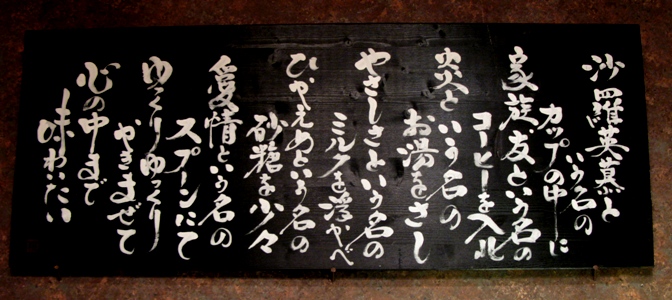 沙羅英慕と
いう名の
カップの中に
家族友という名の
コーヒーを入ル
炎という名の
お湯をさし
やさしさという名の
ミルクを浮かべ
ひかえめという名の
砂糖を少々
愛情という名の
スプーンにて
ゆっくりゆっくり
かきまぜて
心の中まで
味わいたい